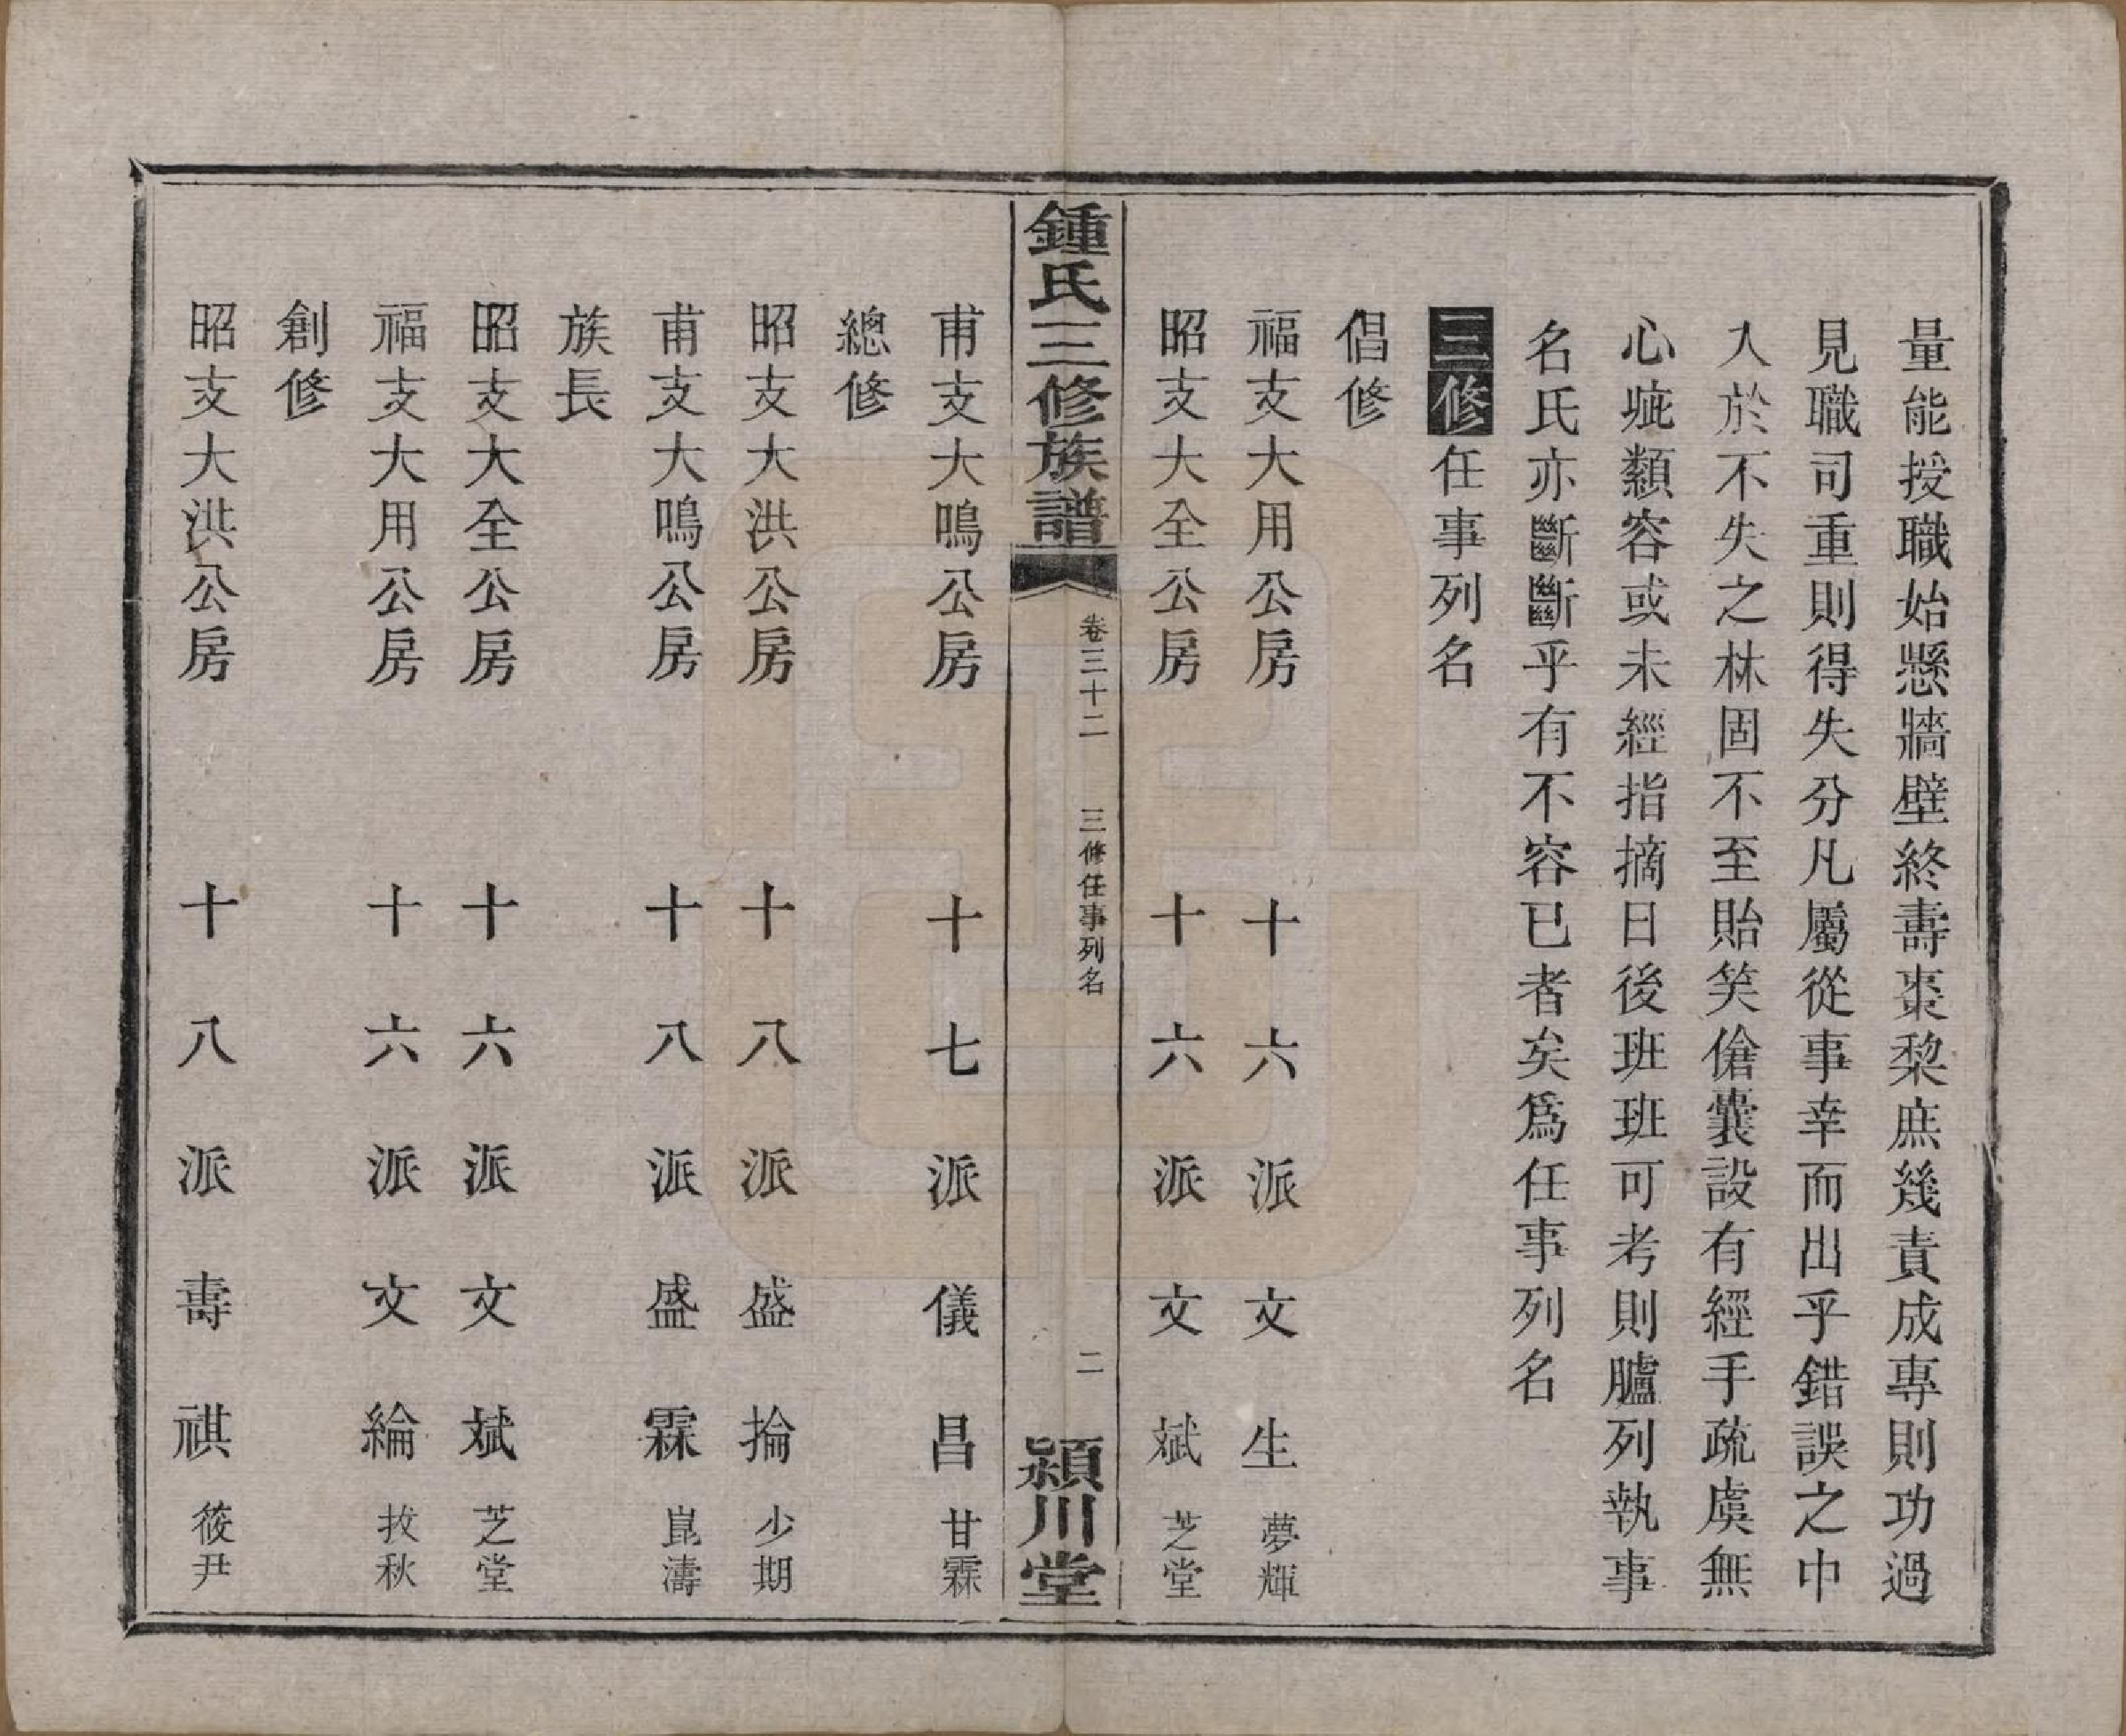 量能授職始懸牆壁終壽棗棃庶幾責成專則功過
見職司重則得失分凡屬從事幸而出乎錯誤之中
入於不失之林固不至貽笑傖囊設有經手疏虞無
心疵纇容或未經指摘日後班班可考則臚列執事
名氏亦斷斷乎有不容已者矣爲任事列名
三修任事列名
倡修
福支大用公房 十六派文生 夢輝
昭支大全公房 十六派文斌 芝堂
鍾氏三修族譜 卷三十二 三修任事列名 二 潁川堂
甫支大鳴公房 十七派儀昌 甘霖
總修
昭支大洪公房 十八派盛掄 少期
甫支大鳴公房 十八派盛霖 崑濤
族長
昭支大全公房 十六派文斌 芝堂
福支大用公房 十六派文綸 抆秋
創修
昭支大洪公房 十八派壽祺 筱尹